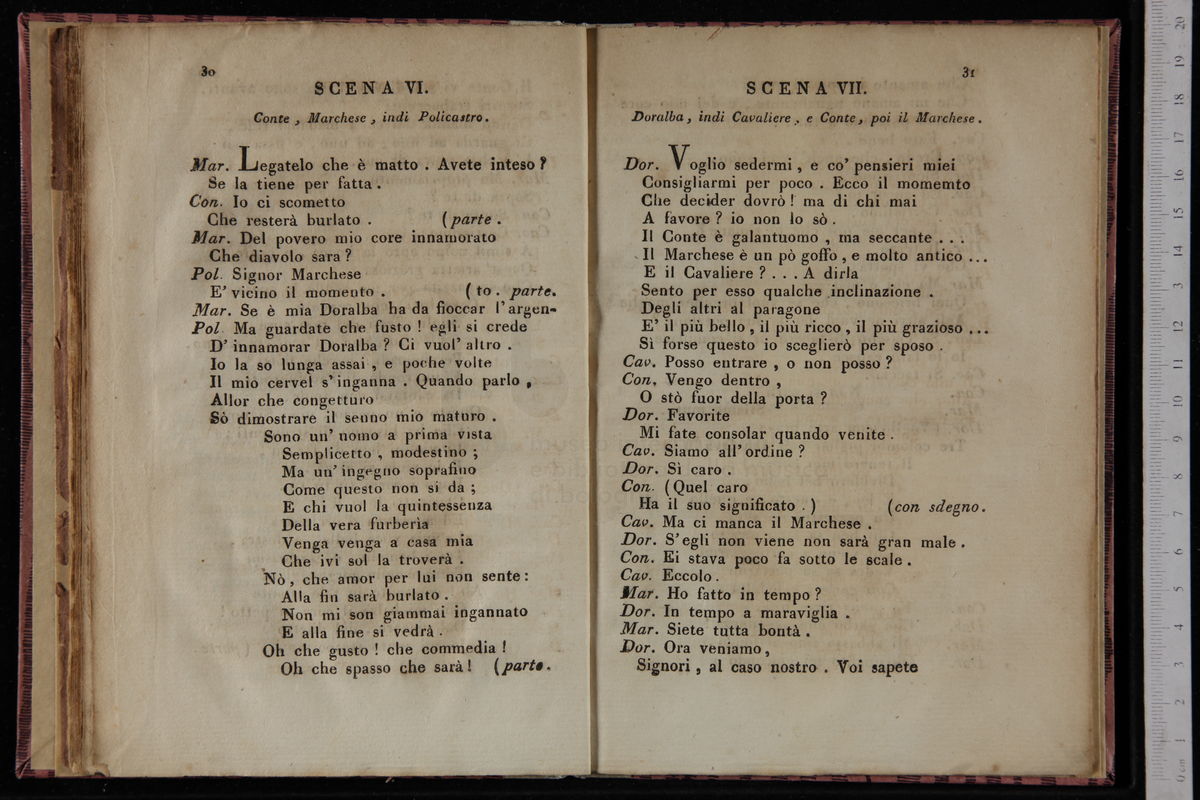 30
SCENA VI.
Conte , Marchese , indi Policastro .
Mar. Legatelo che è matto . Avete inteso ?
Se la tiene per fatta .
Con. Io ci scometto
Che resterà burlato . (parte .
Mar. Del povero mio core innamorato
Che diavolo sara ?
Pol. Signor Marchese
E' vicino il momento . ( to . parte.
Mar. Se è mia Doralba ha da fioccar l' argen-
Pol Ma guardate che fusto ! egli si crede
D' innamorar Doralba ? Ci vuol' altro .
Io la so lunga assai , e poche volte
Il mio cervel s' inganna . Quando parlo ,
Allor che congetturo
Sò dimostrare il senno mio maturo .
Sono un' uomo a prima vista
Semplicetto , modestino ;
Ma un' ingegno soprafino
Come questo non si da ;
E chi vuol la quintessenza
Della vera furberìa
Venga venga a casa mia
Che ivi sol la troverà .
Nò , che amor per lui non sente :
Alla fin sarà burlato .
Non mi son giammai ingannato
E alla fine si vedrà .
Oh che gusto ! che commedia !
Oh che spasso che sarà ! (parte.
31
SCENA VII.
Doralba , indi Cavaliere , e Conte , poi il Marchese .
Dor. Voglio sedermi , e co' pensieri miei
Consigliarmi per poco . Ecco il momemto
Che decider dovrò ! ma di chi mai
A favore ? io non lo sò .
Il Conte è galantuomo , ma seccante . . .
Il Marchese è un pò goffo , e molto antico ...
E il Cavaliere ? . . . A dirla
Sento per esso qualche inclinazione .
Degli altri al paragone
E' il più bello , il più ricco , il più grazioso ...
Sì forse questo io sceglierò per sposo .
Cav. Posso entrare , o non posso ?
Con. Vengo dentro ,
O stò fuor della porta ?
Dor. Favorite
Mi fate consolar quando venite .
Cav. Siamo all' ordine ?
Dor. Sì caro .
Con. ( Quel caro
Ha il suo significato . ) (con sdegno.
Cav. Ma ci manca il Marchese .
Dor. S' egli non viene non sarà gran male .
Con. Ei stava poco fa sotto le scale .
Cav. Eccolo .
Mar. Ho fatto in tempo ?
Dor. In tempo a maraviglia .
Mar. Siete tutta bontà .
Dor. Ora veniamo ,
Signori , al caso nostro . Voi sapete
0 cm 1 2 3 4 5 6 7 8 9 10 11 12 13 14 15 16 17 18 19 20